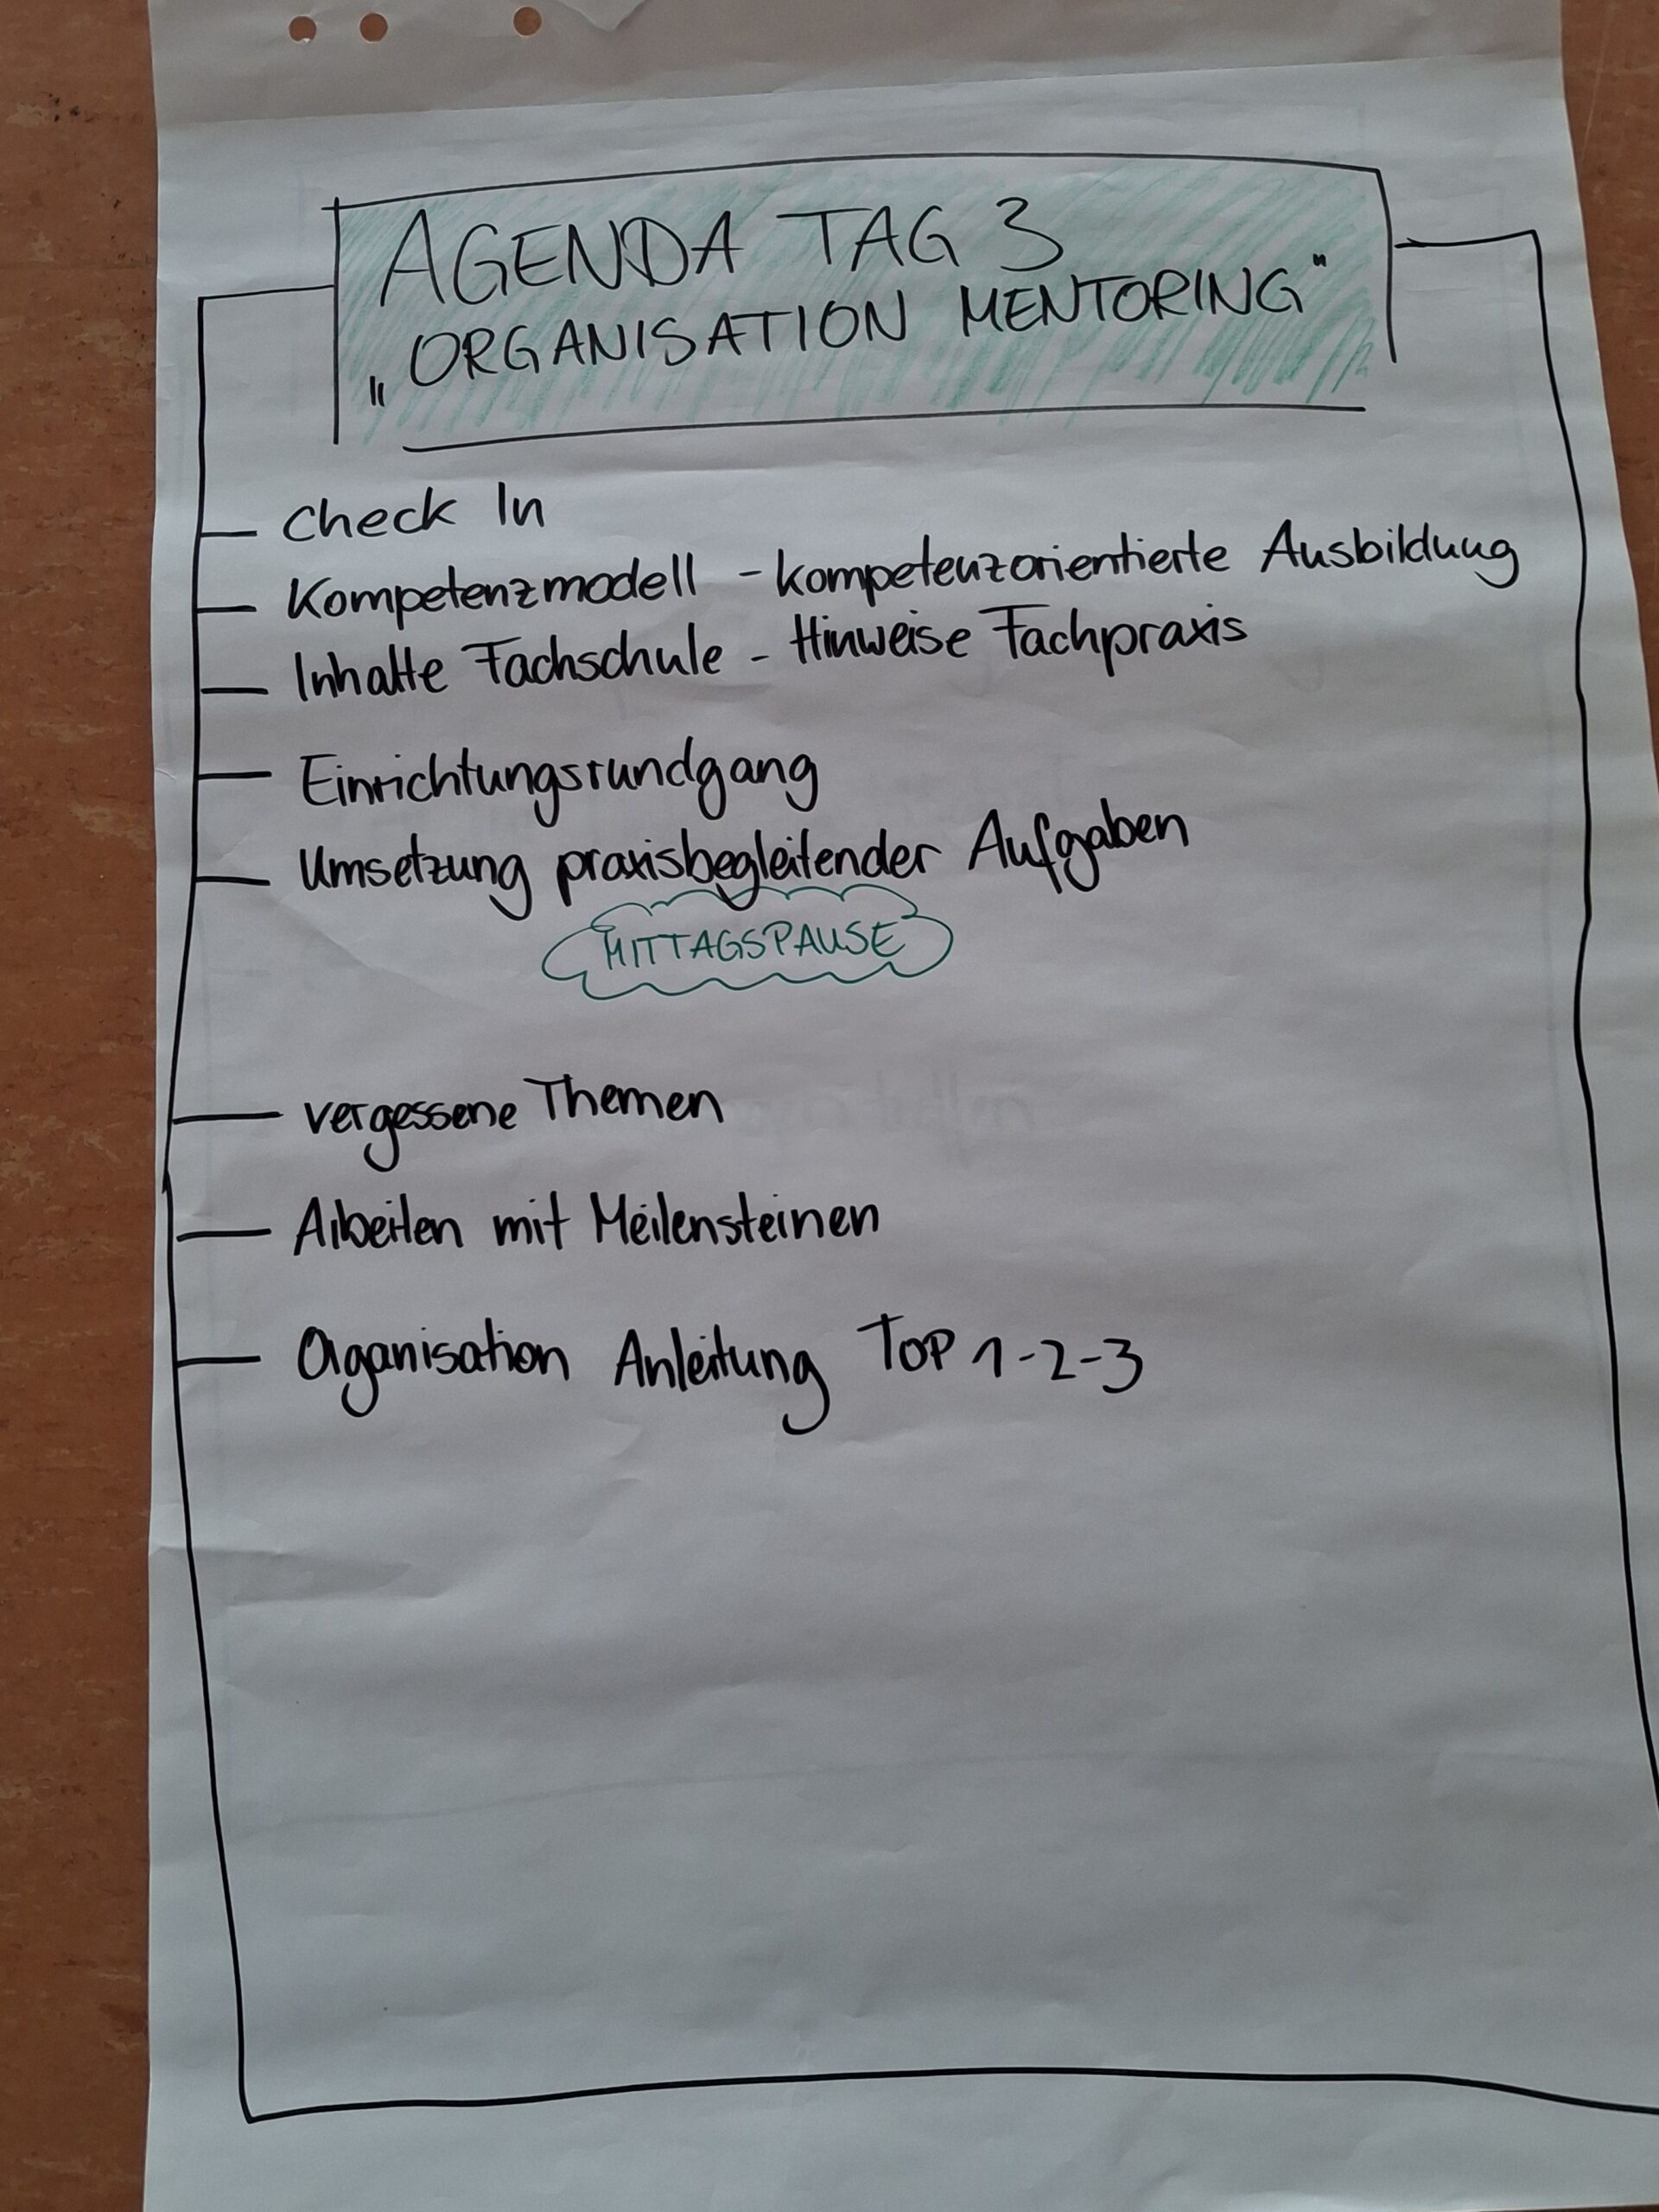 AGENDA TAG 3
„ORGANISATION MENTORING"
Check In
Kompetenzmodell - kompetenzorientierte Ausbildung
Inhalte Fachschule - Hinweise Fachpraxis
Einrichtungsrundgang
Umsetzung praxisbegleitender Aufgaben
MITTAGSPAUSE
vergessene Themen
Arbeiten mit Meilensteinen
Organisation Anleitung TOP 1-2-3